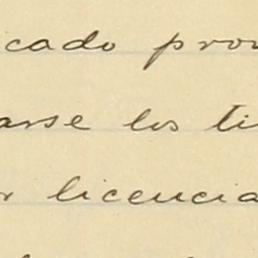 icado pro
arse los ti
r licencia